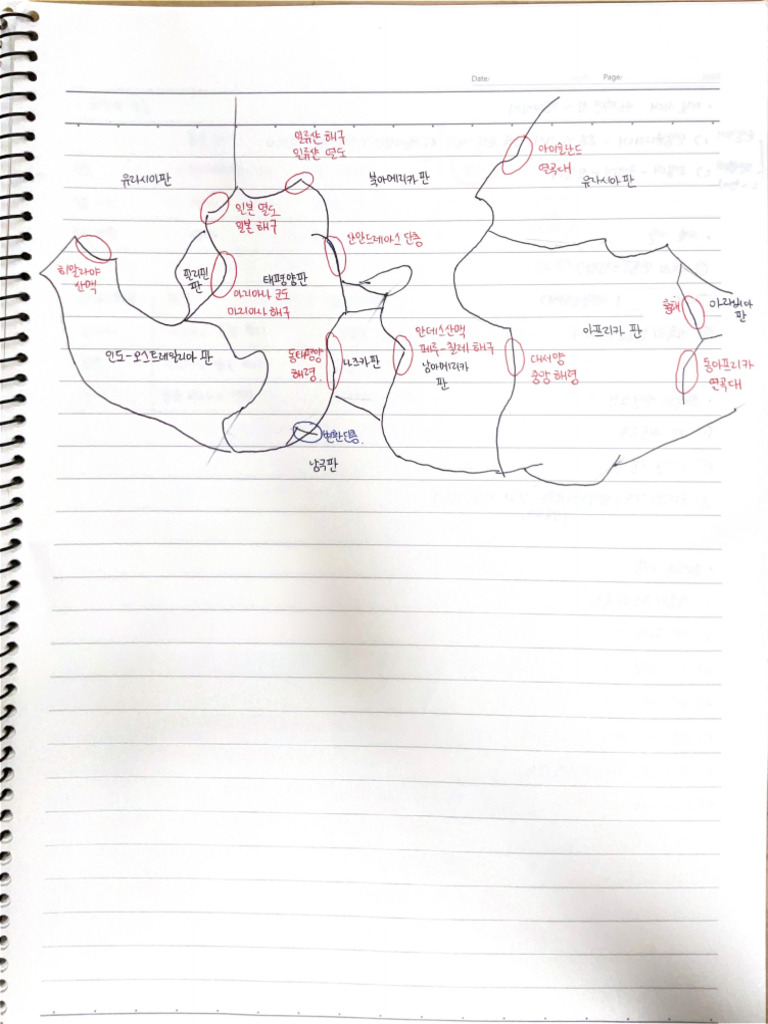 Date:
Page:
알류샨 해구
알류샨 열도
유라시아판
북아메리카 판
아이슬란드
열곡대
유라시아 판
일본 열도
일본 해구
산안드레아스 단층
히말라야
산맥
필리핀
판
태평양판
마리아나 군도
마리아나 해구
홍해
아라비아
판
인도-오스트레일리아 판
동태평양
해령.
나즈카판
안데스산맥
페루-칠레 해구
남아메리카
판
대서양
중앙 해령
아프리카 판
동아프리카
열곡대
변환단층.
남극판